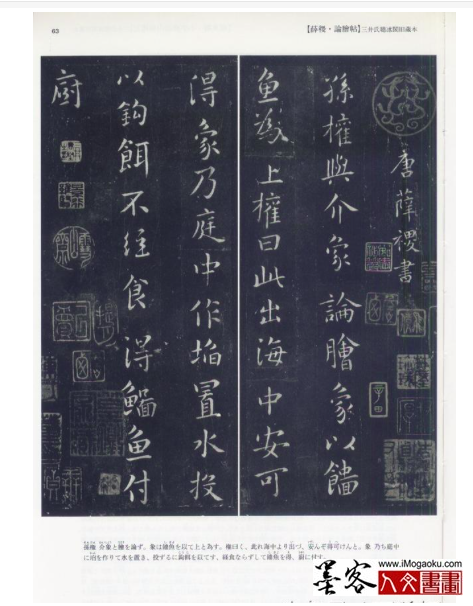 63
【薛稷・論膾帖】三井氏聴氷閣旧蔵本
唐薛稷書
孫權與介象論膾象以鯔
鱼為上權曰此出海中安可
得象乃庭中作埳置水投
以鈎餌不經食得鯔鱼付
廚
孫権 介象と膾を論ず。象は鯔魚を以て上と為す。権曰く、此れ海中より出づ、安んぞ得可けんと。象 乃ち庭中
に埳を作りて水を置き、投ずるに鉤餌を以てす。経食ならずして鯔魚を得、廚に付す。
www.iMogaoku.com
墨客